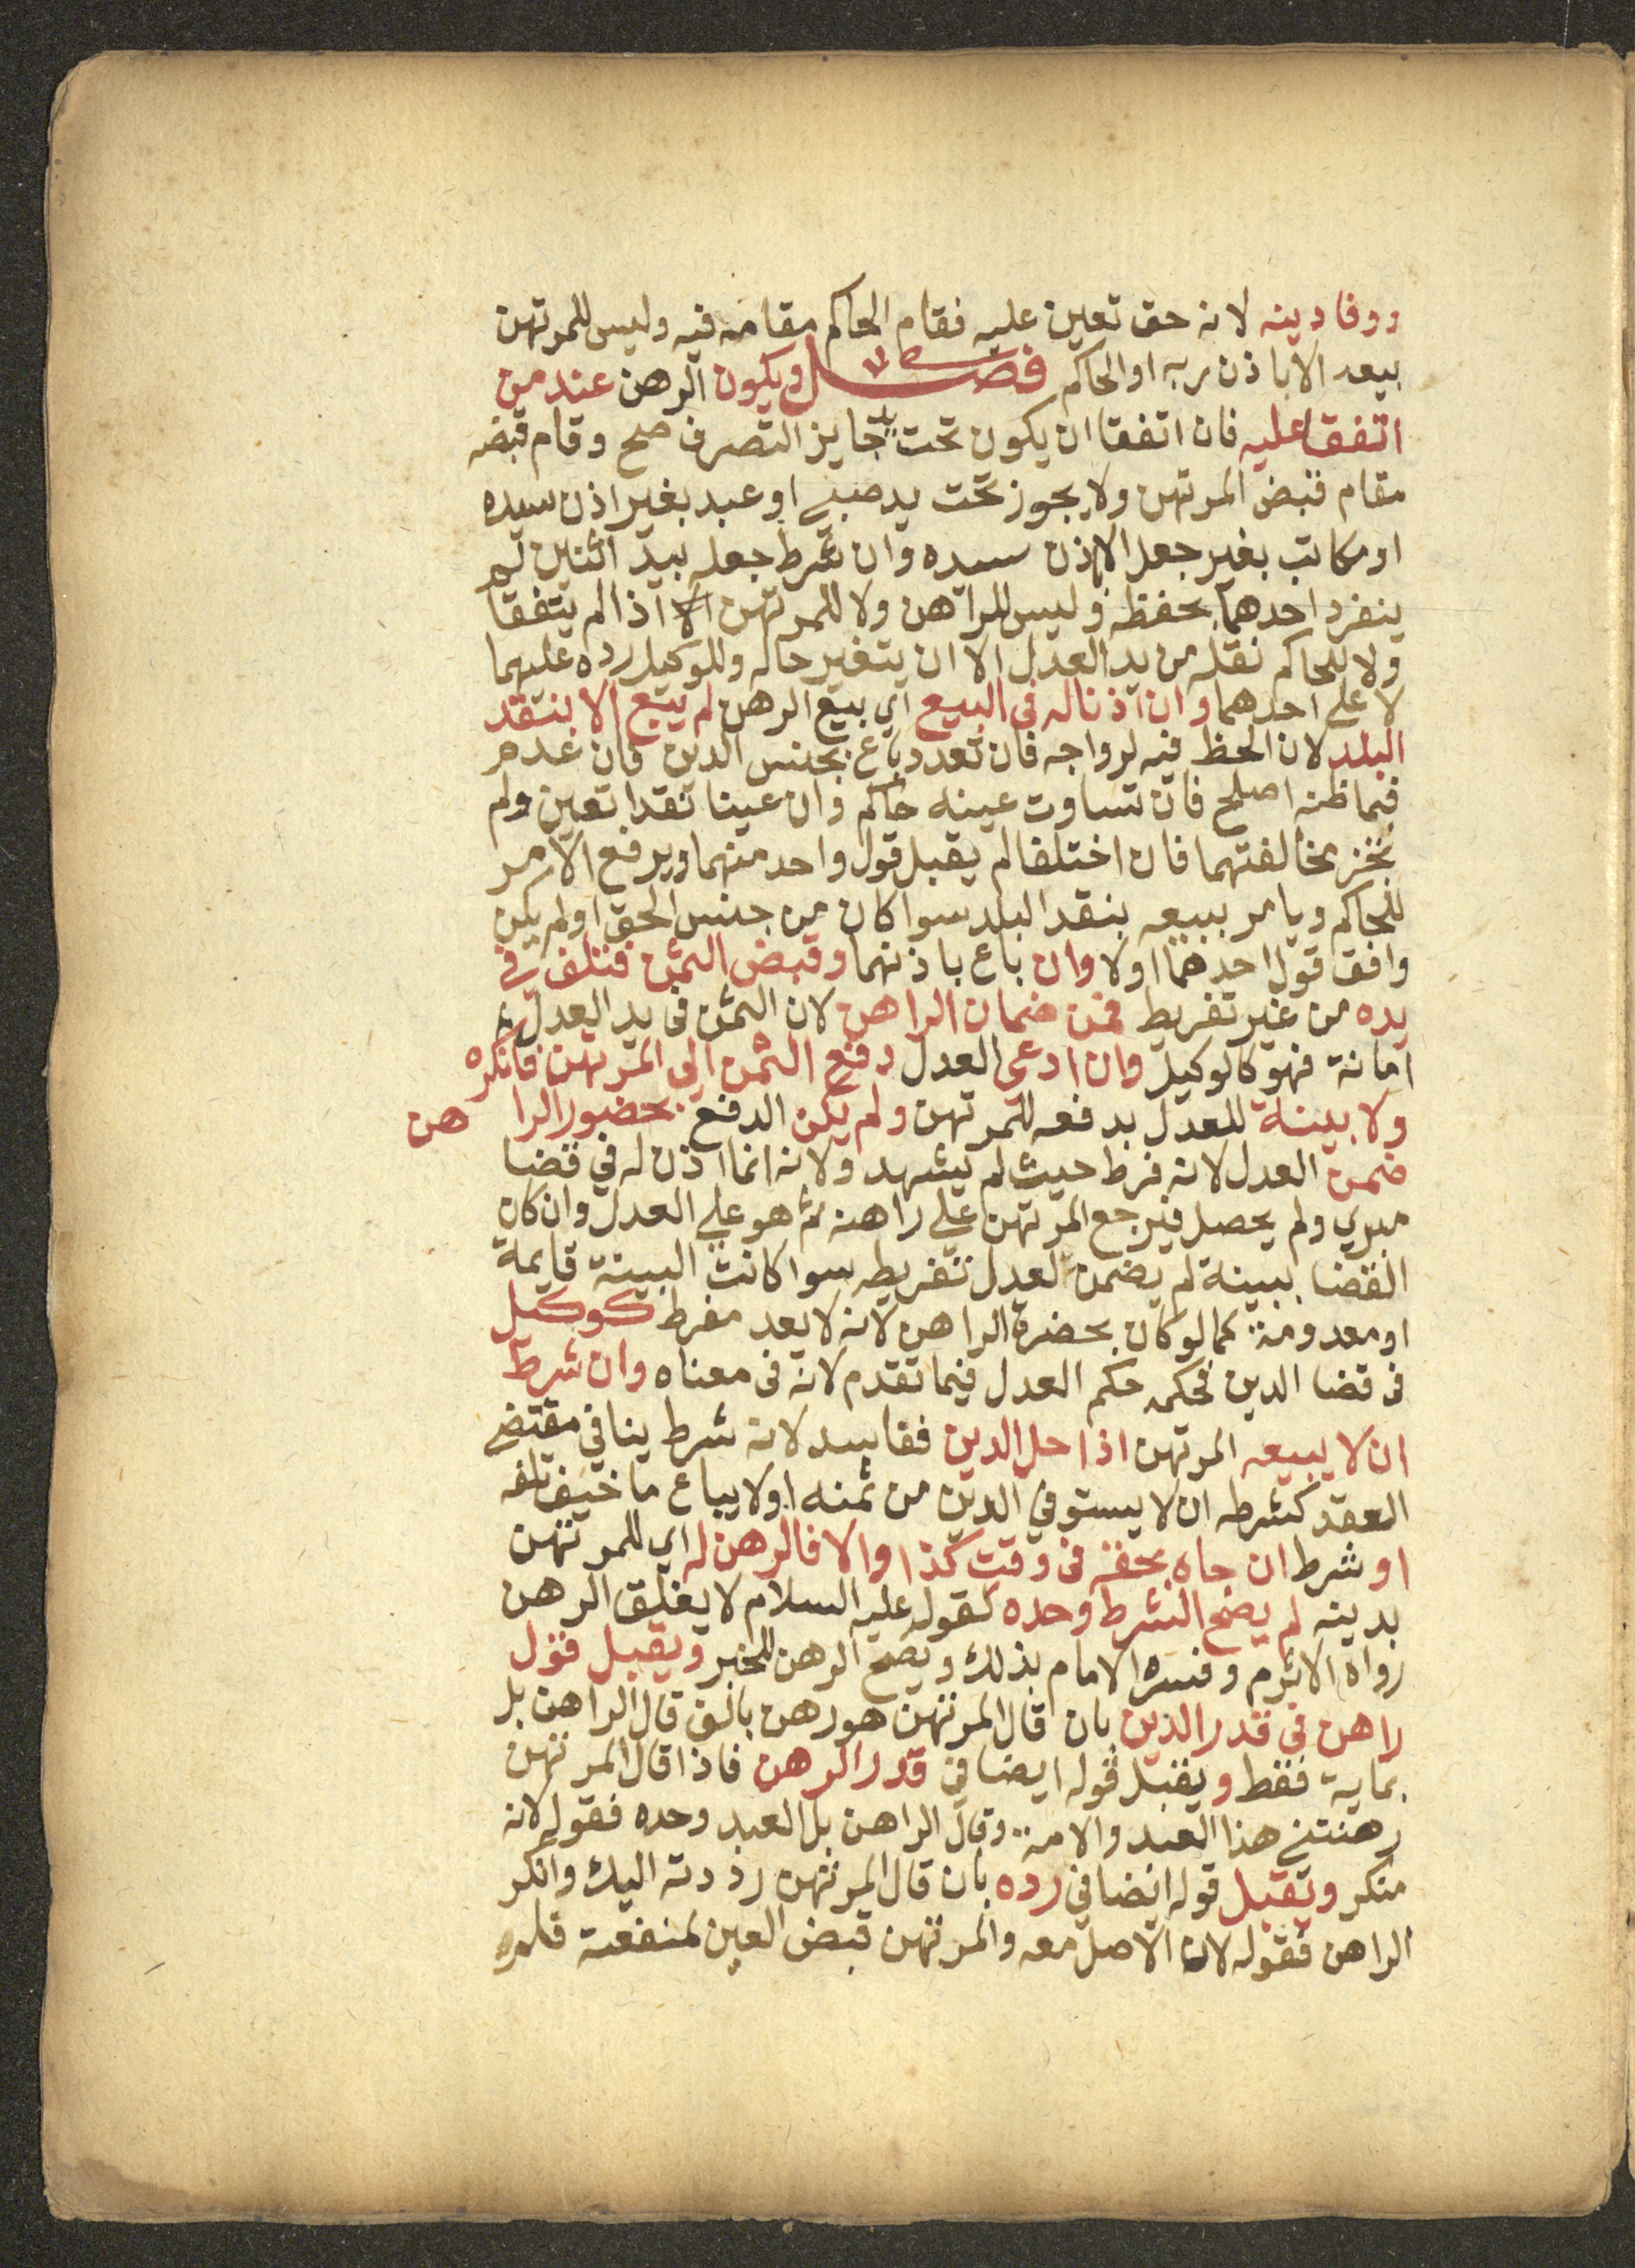 ووفا دينه لانه حق تعين عليه فقام الحاكم مقامه فيه وليس للمرتهن
بيعه الا باذن ربه او الحاكم فصل ويكون الرهن عند من
اتفقا عليه فان اتفقا ان يكون تحت يد جايز التصرف صح وقام قبضه
مقام قبض المرتهن ولا يجوز تحت يد صبي او عبد بغير اذن سيده
او مكاتب بغير جعل الا باذن سيده وان شرط جعله بيد اثنين لم
ينفرد احدهما بحفظه وليس للراهن ولا للمرتهن اذا لم يتفقا
ولا للحاكم نقله من يد العدل الا ان يتغير حاله وللوكيل رده عليهما
لا على احدهما وان اذنا له في البيع اي بيع الرهن لم يبع الا بنقد
البلد لان الحظ فيه لرواجه فان تعدد باع بجنس الدين فان عدم
فبما ظنه اصلح فان تساوت عينه حاكم وان عينا نقدا تعين ولم
تجز مخالفتهما فان اختلفا لم يقبل قول واحد منهما ويرفع الامر
للحاكم ويامر ببيعه بنقد البلد سوا كان من جنس الحق او لم يكن
وافق قول احدهما اولا وان باع باذنهما وقبض الثمن فتلف في
يده من غير تفريط فمن ضمان الراهن لان الثمن في يد العدل
امانة فهو كالوكيل وان ادعى العدل دفع الثمن الى المرتهن فانكره
ولا بينة للعدل بدفعه للمرتهن ولم يكن الدفع بحضور الراهن
ضمن العدل لانه فرط حيث لم يشهد ولانه انما اذن له في قضا
مبري ولم يحصل فيرجع المرتهن على راهنه ثم هو على العدل وان كان
القضا ببينة لم يضمن العدل تفريطه سوا كانت البينة قايمة
او معدومة كما لو كان بحضرة الراهن لانه لا يعد مفرط كوكيل
في قضا الدين فحكمه حكم العدل فيما تقدم لانه في معناه وان شرط
ان لا يبيعه المرتهن اذا حل الدين ففاسد لانه شرط ينافي مقتضى
العقد كشرطه ان لا يستوفي الدين من ثمنه او لا يباع ما خيف تلفه
او شرط ان جاه بحقه في وقت كذا والا فالرهن له اي للمرتهن
بدينه لم يصح الشرط وحده كقوله عليه السلام لا يغلق الرهن
رواه الاثرم وفسره الامام بذلك ويصح الرهن للخبر ويقبل قول
راهن في قدر الدين بان قال المرتهن هو رهن بالف قال الراهن بل
بماية فقط ويقبل قوله ايضا في قدر الرهن فاذا قال المرتهن
رهنتني هذا العبد والامة وقال الراهن بل العبد وحده فقوله لانه
منكر وتقبل قوله ايضا في رده بان قال المرتهن رددته اليك وانكر
الراهن فقوله لان الاصل معه والمرتهن قبض العين لمنفعته فلم